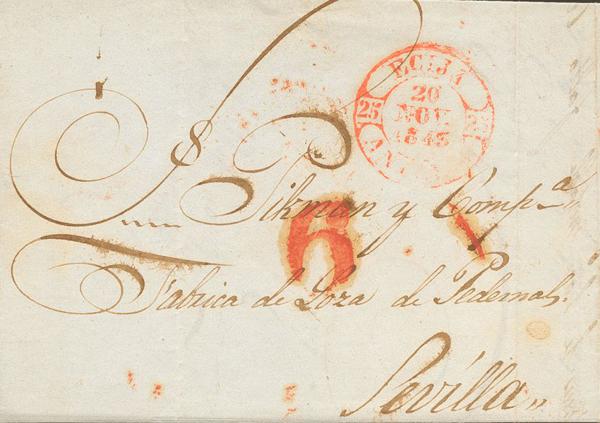 ECIJA
20
NOV
1843
25
S.
Pikman y Comp.a
6
Fabrica de Loza de Pedernal.
Sevilla